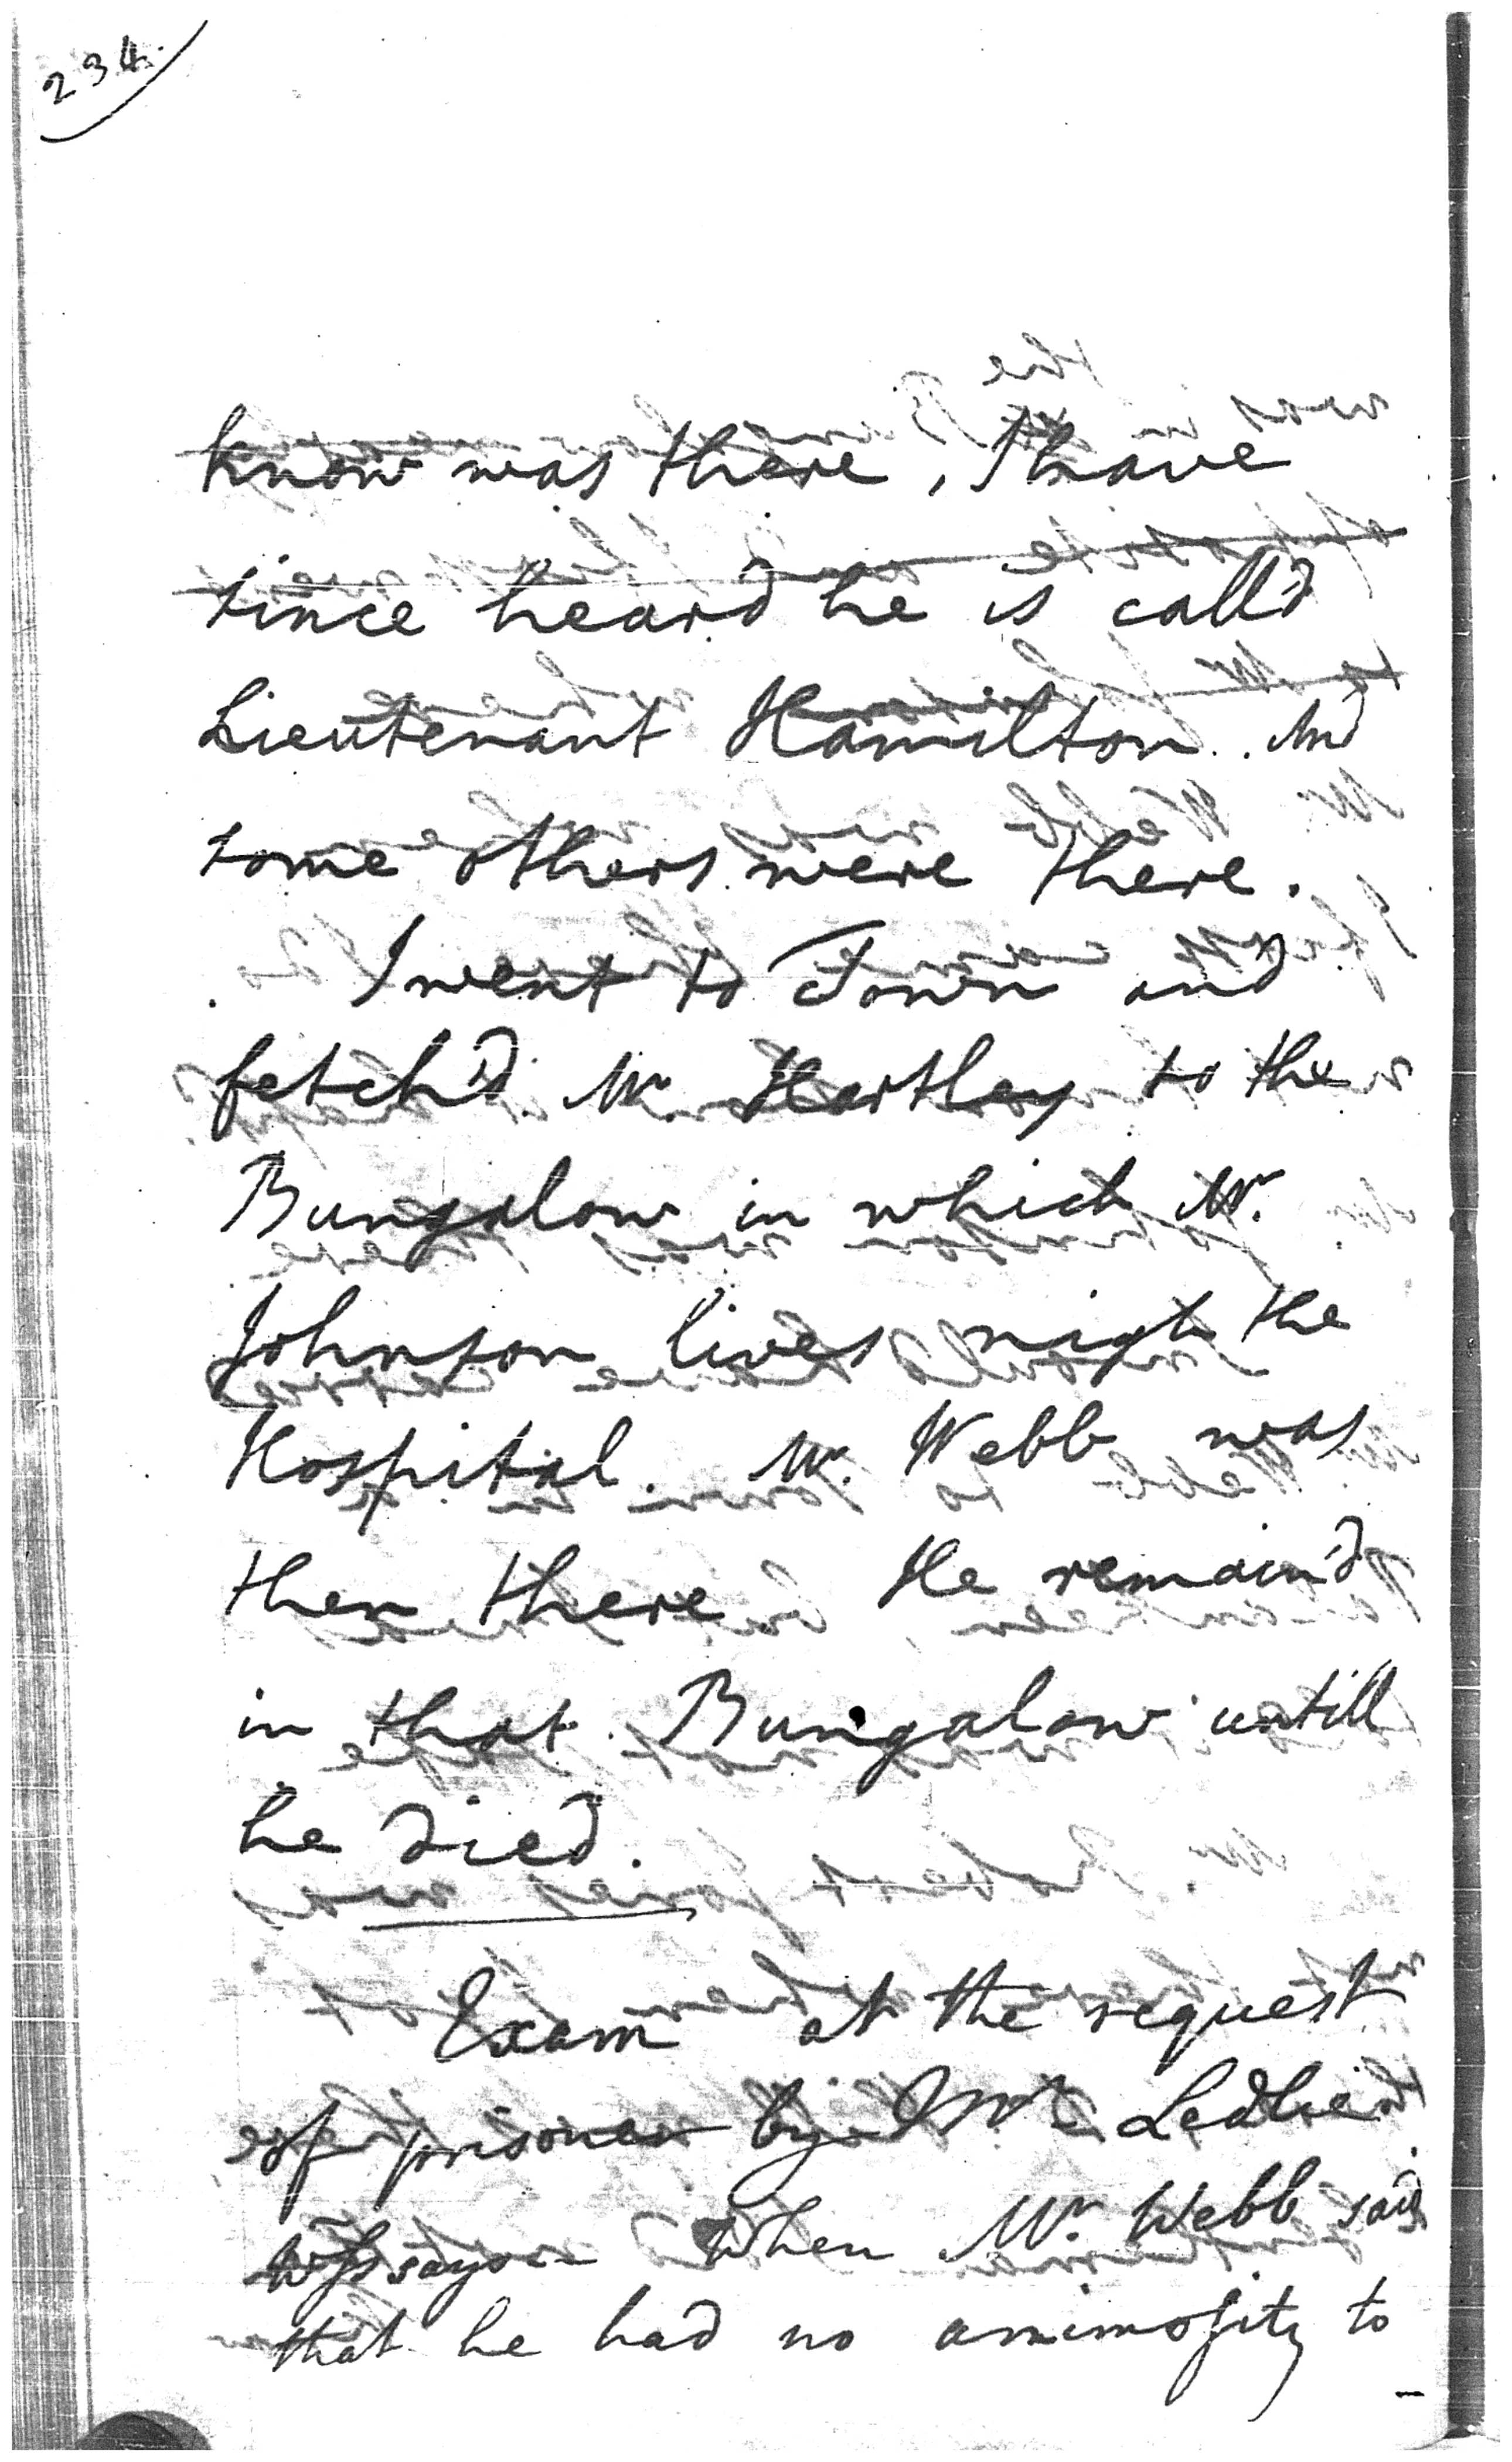 234.
know was there, I have
since heard he is call'd
Lieutenant Hamilton. And
some others were there.
I went to Town and
fetch'd Mr. Hartley to the
Bungalow in which Mr.
Johnson lives nigh the
Hospital. Mr. Webb was
then there He remain'd
in that Bungalow untill
he died.
Exam at the request
of prisoner by Mr Ledlie
says When Mr. Webb said
that he had no animosity to